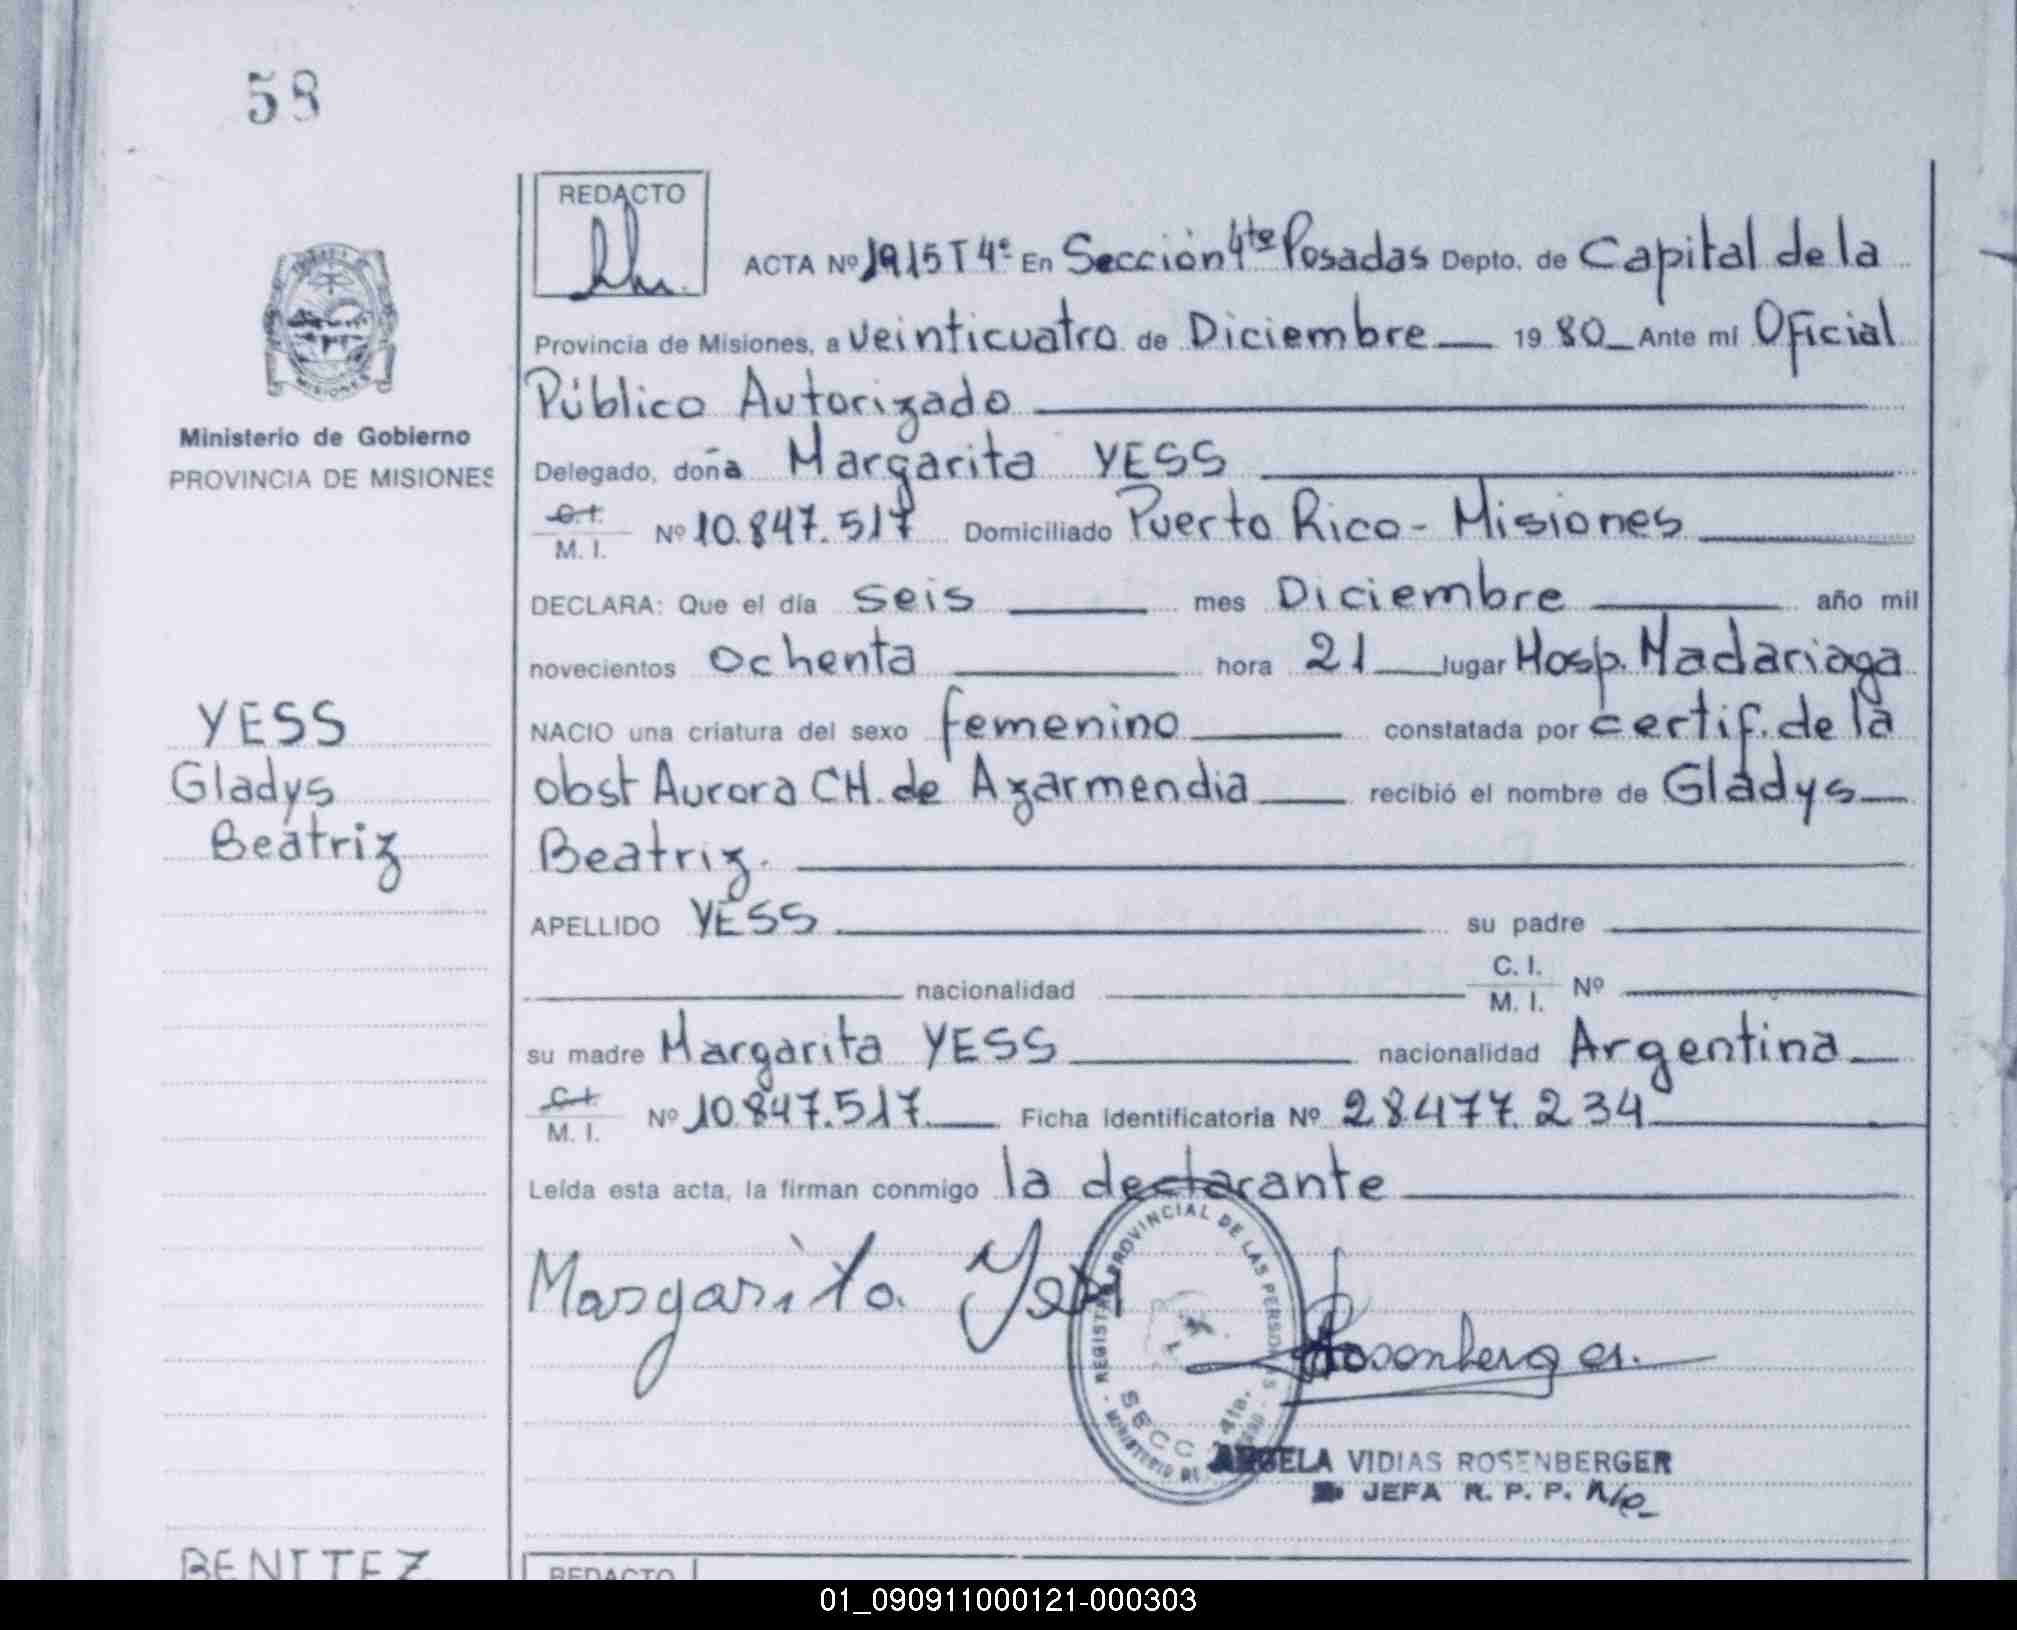 58
REDACTO
ACTA Nº 1915 T 4º En Sección 4ta Posadas Depto. de Capital de la
Provincia de Misiones, a veinticuatro de Diciembre 1980 Ante mi Oficial
Público Autorizado
Delegado, doña Margarita YESS
C.I.
M. I. Nº 10.847.517 Domiciliado Puerto Rico - Misiones
DECLARA: Que el día seis mes Diciembre año mil
novecientos ochenta hora 21 lugar Hosp. Madariaga
NACIO una criatura del sexo femenino constatada por certif. de la
obst Aurora CH. de Azarmendia recibió el nombre de Gladys
Beatriz.
APELLIDO YESS su padre
nacionalidad C. I.
M. I. Nº
su madre Margarita YESS nacionalidad Argentina
C.I.
M. I. Nº 10.847.517. Ficha Identificatoria Nº 28.477.234
Leída esta acta, la firman conmigo la declarante
Margarita Yess
Rosenberger
REGISTRO PROVINCIAL DE LAS PERSONAS
SECC 4ta.
MINISTERIO DE GOBIERNO
ANGELA VIDIAS ROSENBERGER
JEFA R. P. P.
Ministerio de Gobierno
PROVINCIA DE MISIONES
YESS
Gladys
Beatriz
BENITEZ
REDACTO
01_090911000121-000303